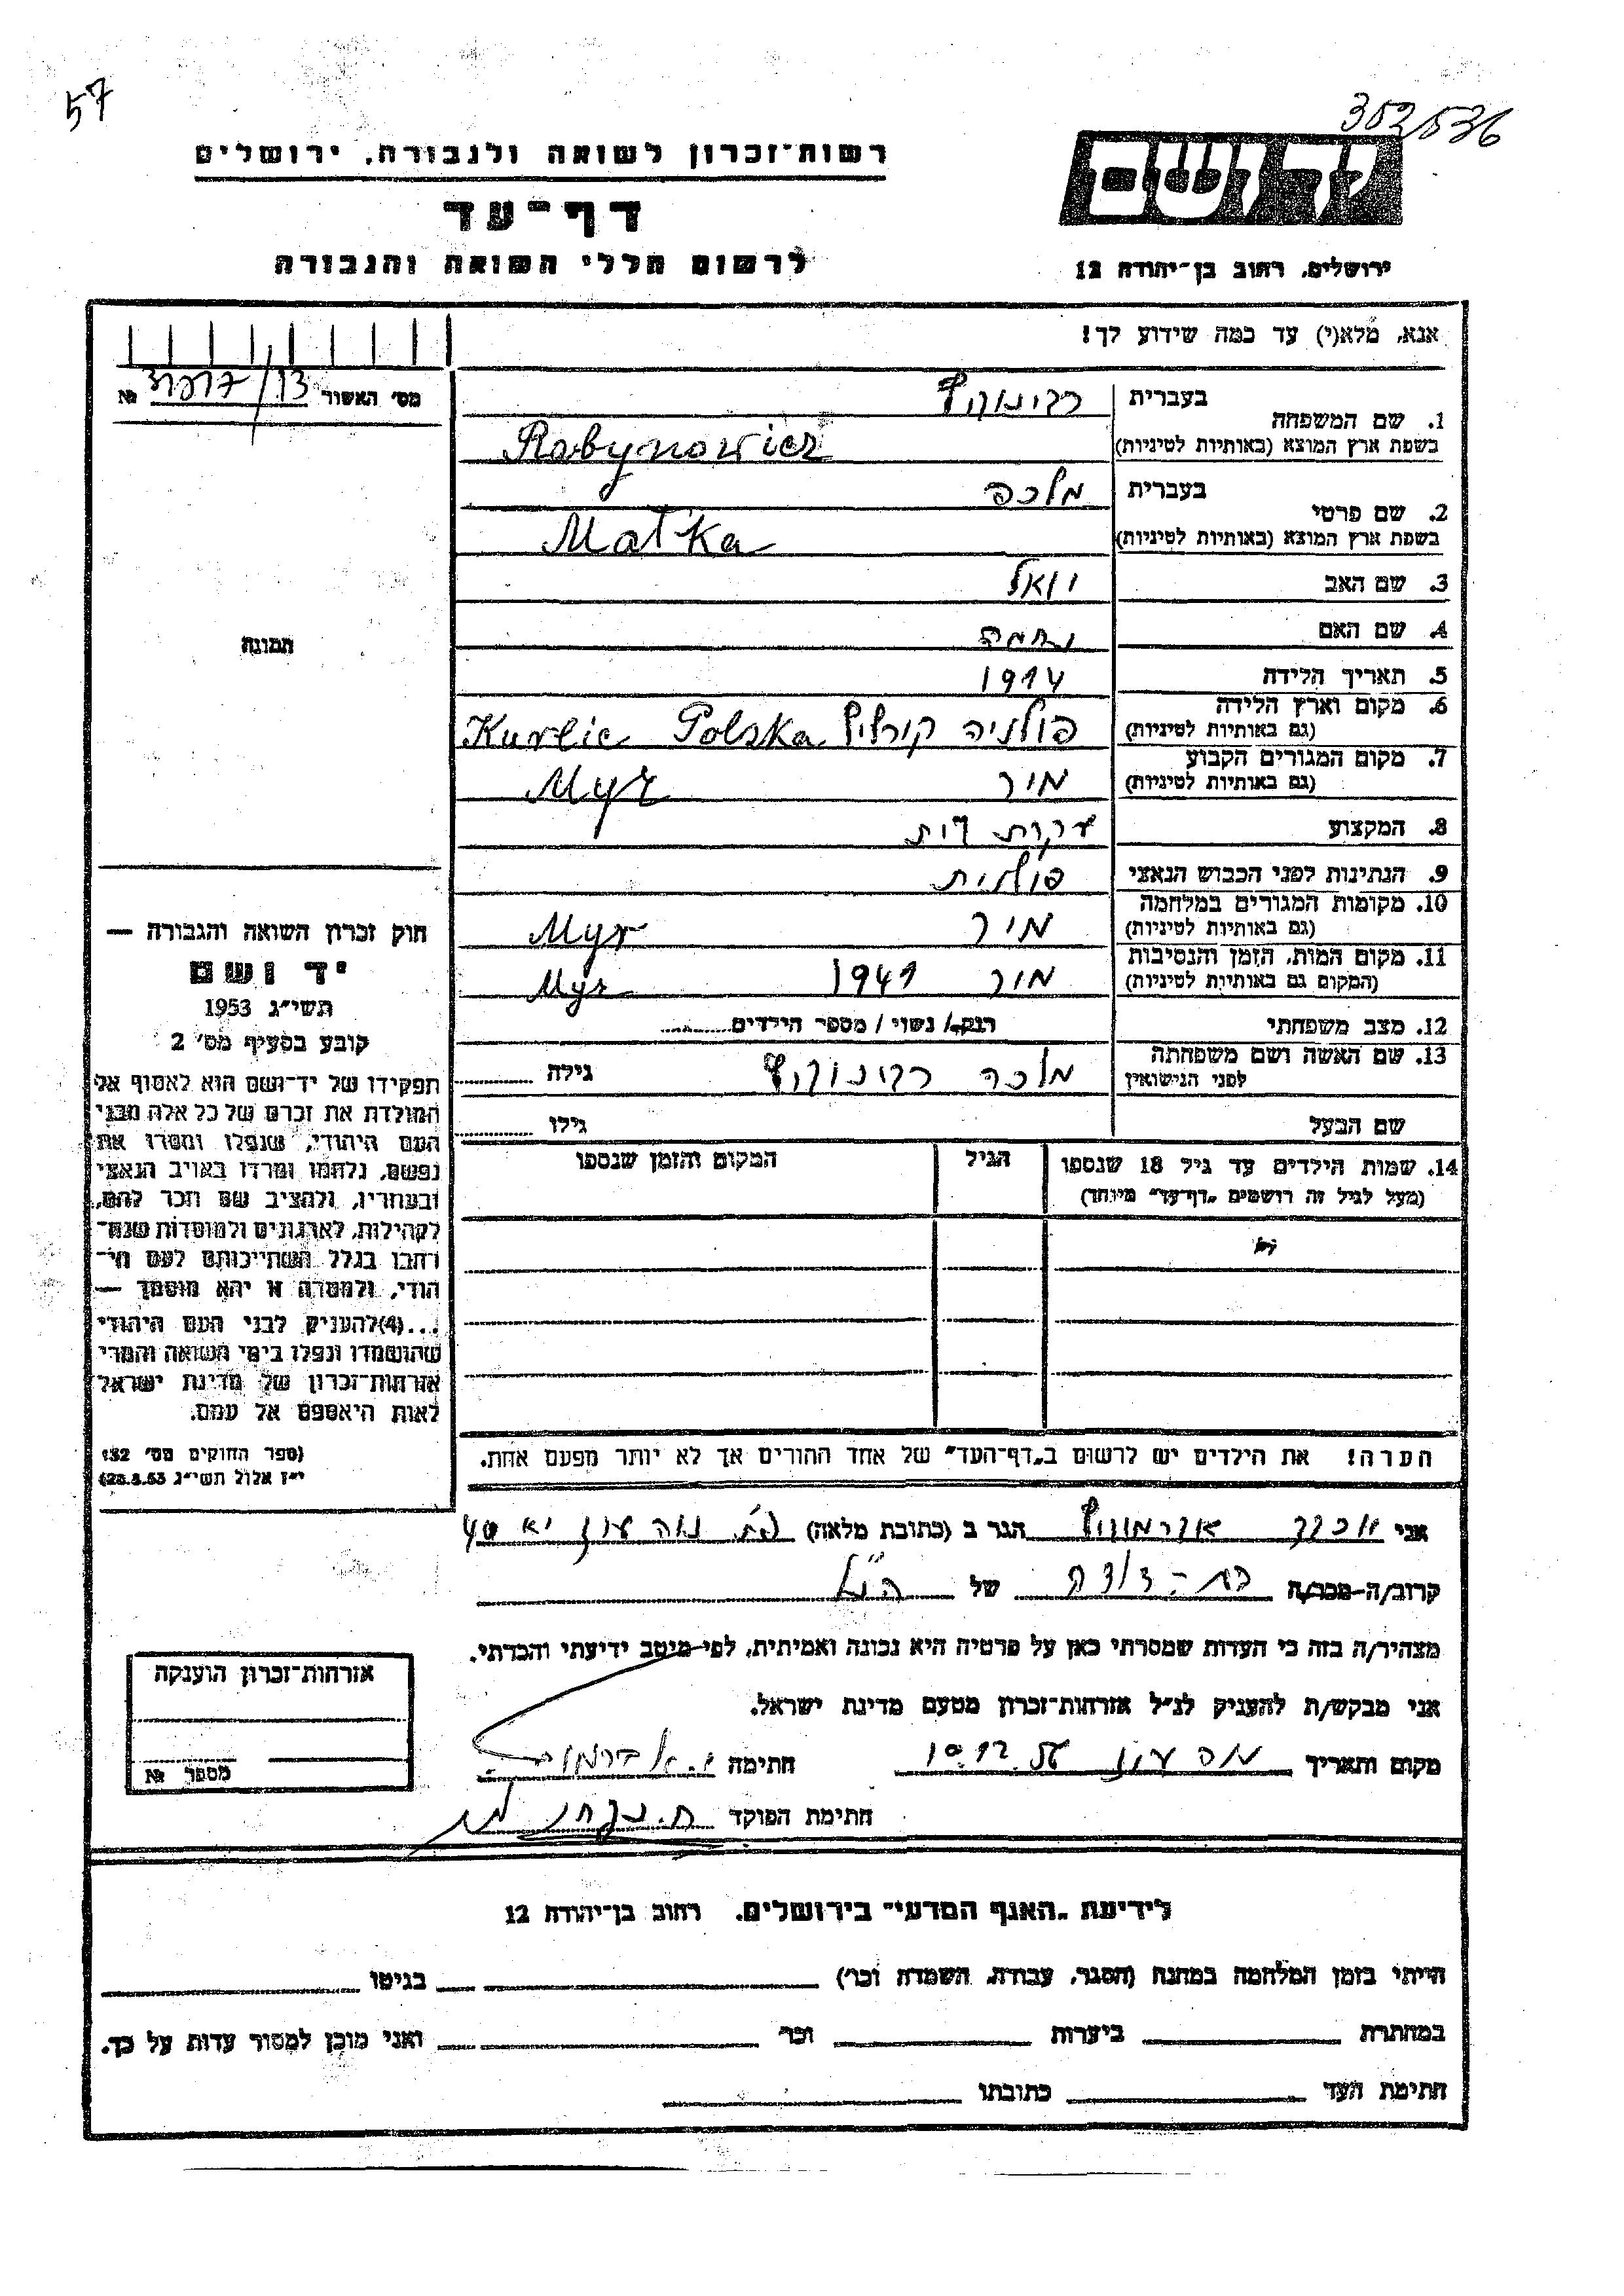 57
352/536
רשות־זכרון לשואה ולגבורה, ירושלים
ידושם
דף־עד
לרשום חללי השואה והגבורה
ירושלים, רחוב בן־יהודה 12
אנא, מלא(י) עד כמה שידוע לך!
מס' האשור № /13
בעברית רבינוביץ
1. שם המשפחה
בשפת ארץ המוצא (באותיות לטיניות) Rabynowicz
בעברית מלכה
2. שם פרטי
בשפת ארץ המוצא (באותיות לטיניות) Malka
3. שם האב יואל
4. שם האם נחמה
תמונה
5. תאריך הלידה 1914
6. מקום וארץ הלידה
(גם באותיות לטיניות) פולניה קורליץ Kurlic Polska
7. מקום המגורים הקבוע
(גם באותיות לטיניות) מיר Myr
8. המקצוע עקרת בית
9. הנתינות לפני הכבוש הנאצי פולנית
10. מקומות המגורים במלחמה
(גם באותיות לטיניות) מיר Myr
11. מקום המות, הזמן והנסיבות
(המקום גם באותיות לטיניות) מיר 1941 Myr
12. מצב משפחתי רוק/ה / נשוי / מספר הילדים
13. שם האשה ושם משפחתה
לפני הנישואין מלכה רבינוביץ גילה
שם הבעל גילו
14. שמות הילדים עד גיל 18 שנספו הגיל המקום והזמן שנספו
(מעל לגיל זה רושמים „דף־עד" מיוחד)
הערה! את הילדים יש לרשום ב„דף־העד" של אחד ההורים אך לא יותר מפעם אחת.
חוק זכרון השואה והגבורה —
יד ושם
תשי"ג 1953
קובע בסעיף מס' 2
תפקידו של יד־ושם הוא לאסוף אל
המולדת את זכרם של כל אלה מבני
העם היהודי, שנפלו ומסרו את
נפשם, נלחמו ומרדו באויב הנאצי
ובעוזריו, ולהציב שם וזכר להם,
לקהילות, לארגונים ולמוסדות שנח־
רבו בגלל השתייכותם לעם הי־
הודי, ולמטרה זו יהא מוסמך —
...(4) להעניק לבני העם היהודי
שהושמדו ונפלו בימי השואה והמרי
אזרחות־זכרון של מדינת ישראל
לאות היאספם אל עמם.
(ספר החוקים מס' 132
י"ז אלול תשי"ג 28.8.53)
אני יוכבד אברמוביץ הגר ב (כתובת מלאה) נוה עוז
קרוב/ה–מכר/ה בת-דודה של הנ"ל
מצהיר/ה בזה כי העדות שמסרתי כאן על פרטיה היא נכונה ואמיתית, לפי מיטב ידיעתי והכרתי.
אני מבקש/ת להעניק לנ"ל אזרחות־זכרון מטעם מדינת ישראל.
מקום ותאריך נוה עוז 10.12.56 חתימה י. אברמוביץ
חתימת הפוקד
אזרחות־זכרון הוענקה
מספר №
לידיעת „האגף המדעי" בירושלים, רחוב בן־יהודה 12
הייתי בזמן המלחמה במחנה (הסגר, עבודה, השמדה וכו') בגיטו
במחתרת ביערות וכו' ואני מוכן למסור עדות על כך.
חתימת העד כתובתו